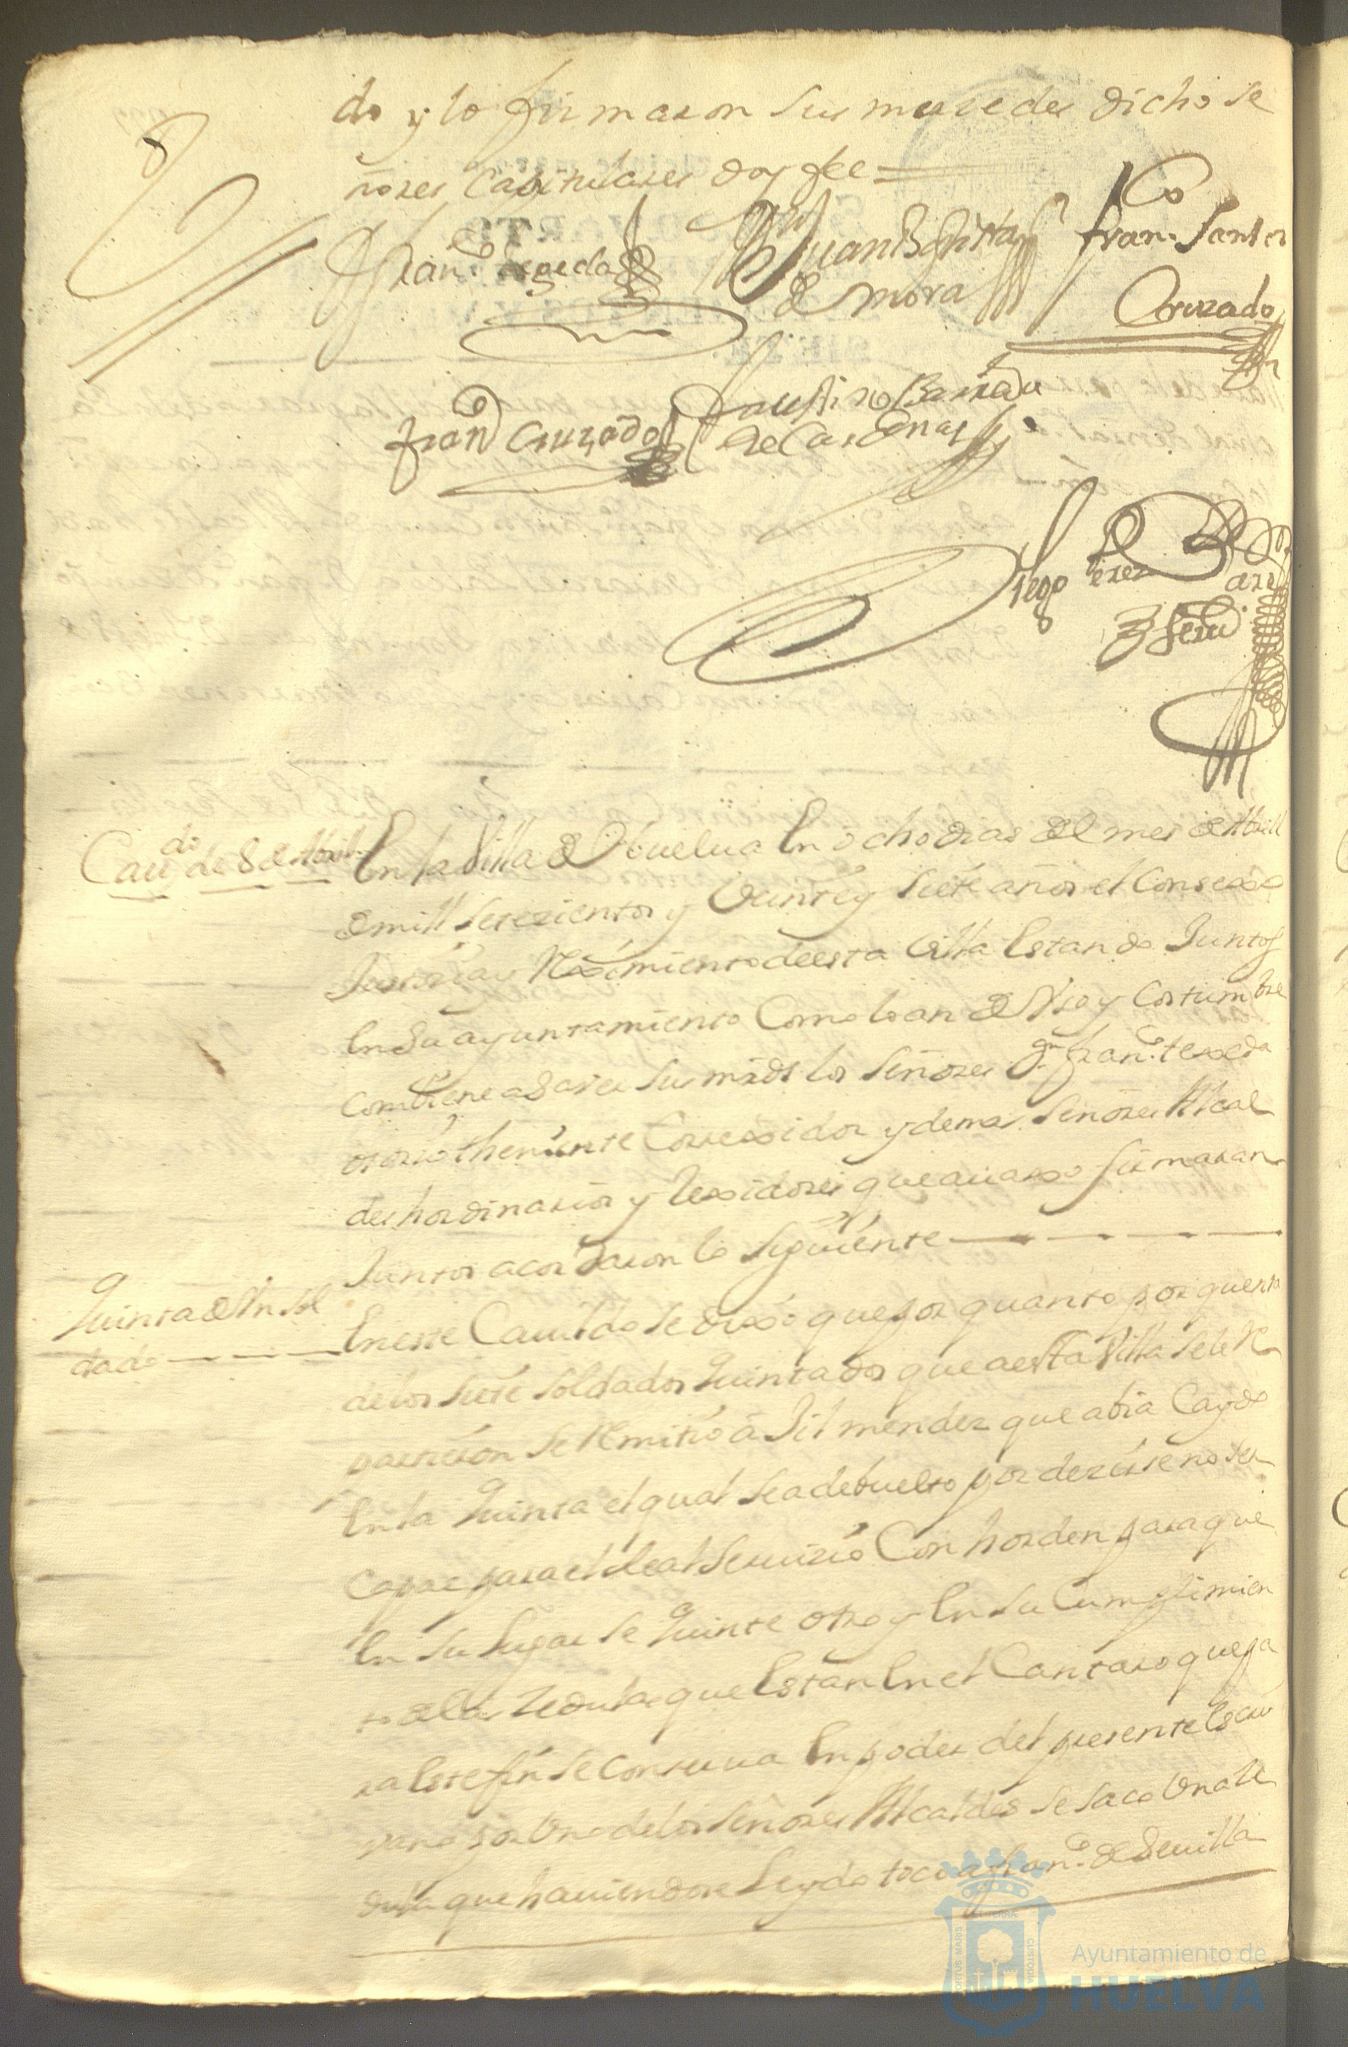 do y lo firmaron sus mercedes dicho se
ñores Capitulares doy fee =
Fran.co texeda
Juan Bptta
de Mora
fran.co Santos
Cruzado
fran.co Cruzado
faustino Barreda
de Cardenas
Diego Perez
essno
Cau.do de 8 de Abril
En la Villa de Huelua En ocho dias del mes de Abrill
de mill setezientos y Veinte y siete años el Consexo
Justizia y Reximiento de esta Villa Estando Juntos
En su ayuntamiento Como lo an de Uso y Costumbre
combiene a sauer sus mrds los señores Dn fran.co texeda
osorio theniente Correxidor y demas señores Alcal
des hordinarios y rexidores que auaxo firmaran
Juntos acordaron lo siguiente
Quinta de Un sol
dado
En este Cauildo se dixo que por quanto por quenta
de los siete soldados quintados que a esta Villa se le Re
partieron se Remitio a Gil mendez que abia Caydo
En la quinta el qual se a debuelto por dezirse no ser
Capaz para el Real Seruizio Con horden para que
En su lugar se quinte otro y En su Cumplimien
to de las zedulas que Estan En el Cantaro que pa
ra Este fin se conserua En poder del presente Escri
vano por Uno de los señores Alcaldes se saco Una ze
dula que hauiendose Leydo toco a fran.co de Seuilla
Ayuntamiento de
HUELVA